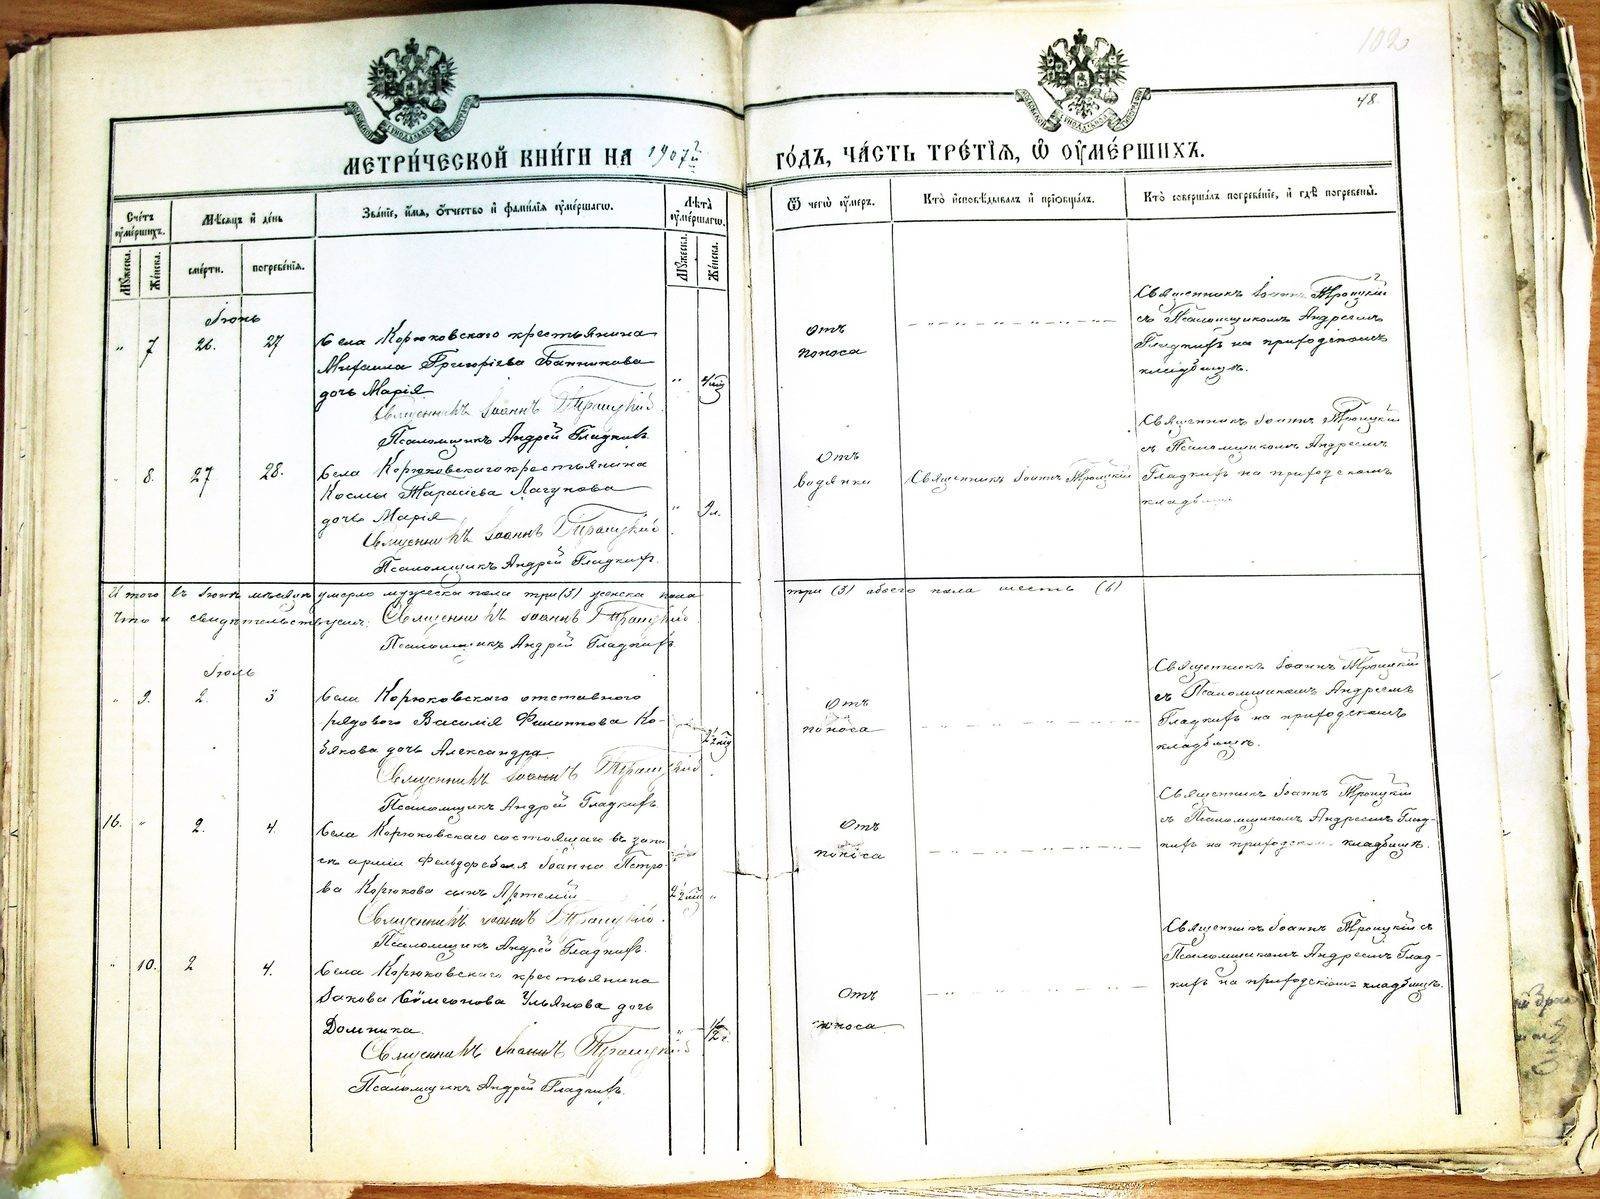 102
48.
МЕТРИ́ЧЕСКОЙ КНИ́ГИ НА 1907й
ГО́ДЪ, ЧА́СТЬ ТРЕ́ТІѦ, Ѡ҆ ОУ҆МЕ́РШИХЪ.
Сче́тъ оу҆ме́ршихъ.
Мѣ́сяцъ и҆ де́нь
Зва́ніе, и҆́мя, о҆́тчество и҆ фами́лія оу҆ме́ршагѡ.
Лѣ́та оу҆ме́ршагѡ.
Ѿ чегѡ̀ оу҆́меръ.
Кто̀ и҆сповѣ́дывалъ и҆ прїѡбща́лъ.
Кто̀ соверша́лъ погребе́ніе, и҆ гдѣ̀ погребены̀.
Мꙋ́жеска.
Же́нска.
сме́рти.
погребе́нія.
Мꙋ́жеска.
Же́нска.
Іюнь
" 7 26. 27
Села Корюковскаго крестьянина
Михаила Григоріева Банникова
дочь Марія
Священникъ Іоаннъ Троицкій
Псаломщикъ Андрей Гладкихъ
Отъ
поноса
Священникъ Іоаннъ Троицкій
съ Псаломщикомъ Андреемъ
Гладкихъ на приходскомъ
кладбищѣ.
" 8. 27 28.
Села Корюковскаго крестьянина
Космы Тарасіева Лагунова
дочь Марія
" 9 л.
Священникъ Іоаннъ Троицкій
Псаломщикъ Андрей Гладкихъ.
Отъ
водянки
Священникъ Іоаннъ Троицкій
Священникъ Іоаннъ Троицкій
съ Псаломщикомъ Андреемъ
Гладкихъ на приходскомъ
кладбищѣ
Итого въ Іюнѣ мѣсяцѣ умерло мужеска пола три (3) женска пола три (3) обоего пола шесть (6)
Что и свидѣтельствуемъ: Священникъ Іоаннъ Троицкій
Псаломщикъ Андрей Гладкихъ
Іюль
" 9. 2. 3
Села Корюковскаго отставного
рядового Василія Филиппова Ко-
бякова дочь Александра
Священникъ Іоаннъ Троицкій
Псаломщикъ Андрей Гладкихъ
Отъ
поноса
Священникъ Іоаннъ Троицкій
съ Псаломщикомъ Андреемъ
Гладкихъ на приходскомъ
кладбищѣ.
16. " 2. 4.
Села Корюковскаго состоящаго въ запа-
сѣ арміи Фельдфебеля Іоанна Петро-
ва Корюкова сынъ Артемій
Священникъ Іоаннъ Троицкій.
Псаломщикъ Андрей Гладкихъ.
Отъ
поноса
Священникъ Іоаннъ Троицкій
съ Псаломщикомъ Андреемъ Глад-
кихъ на приходскомъ кладбищѣ.
" 10. 2 4.
Села Корюковскаго крестьянина
Іакова Сѵмеонова Ульянова дочь
Домника.
" 1/2 г.
Священникъ Іоаннъ Троицкій
Псаломщикъ Андрей Гладкихъ.
Отъ
поноса
Священникъ Іоаннъ Троицкій съ
Псаломщикомъ Андреемъ Глад-
кихъ на приходскомъ кладбищѣ.